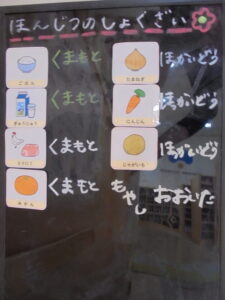 ほんじつのしょくざい
ごはん くまもと
たまねぎ ほっかいどう
ぎゅうにゅう くまもと
にんじん ほっかいどう
とりにく くまもと
じゃがいも ほっかいどう
みかん くまもと
もやし おおいた